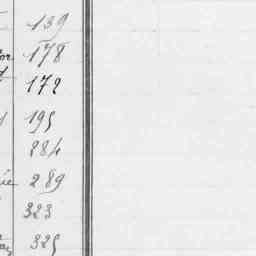 139
178
172
195
284
289
323
325